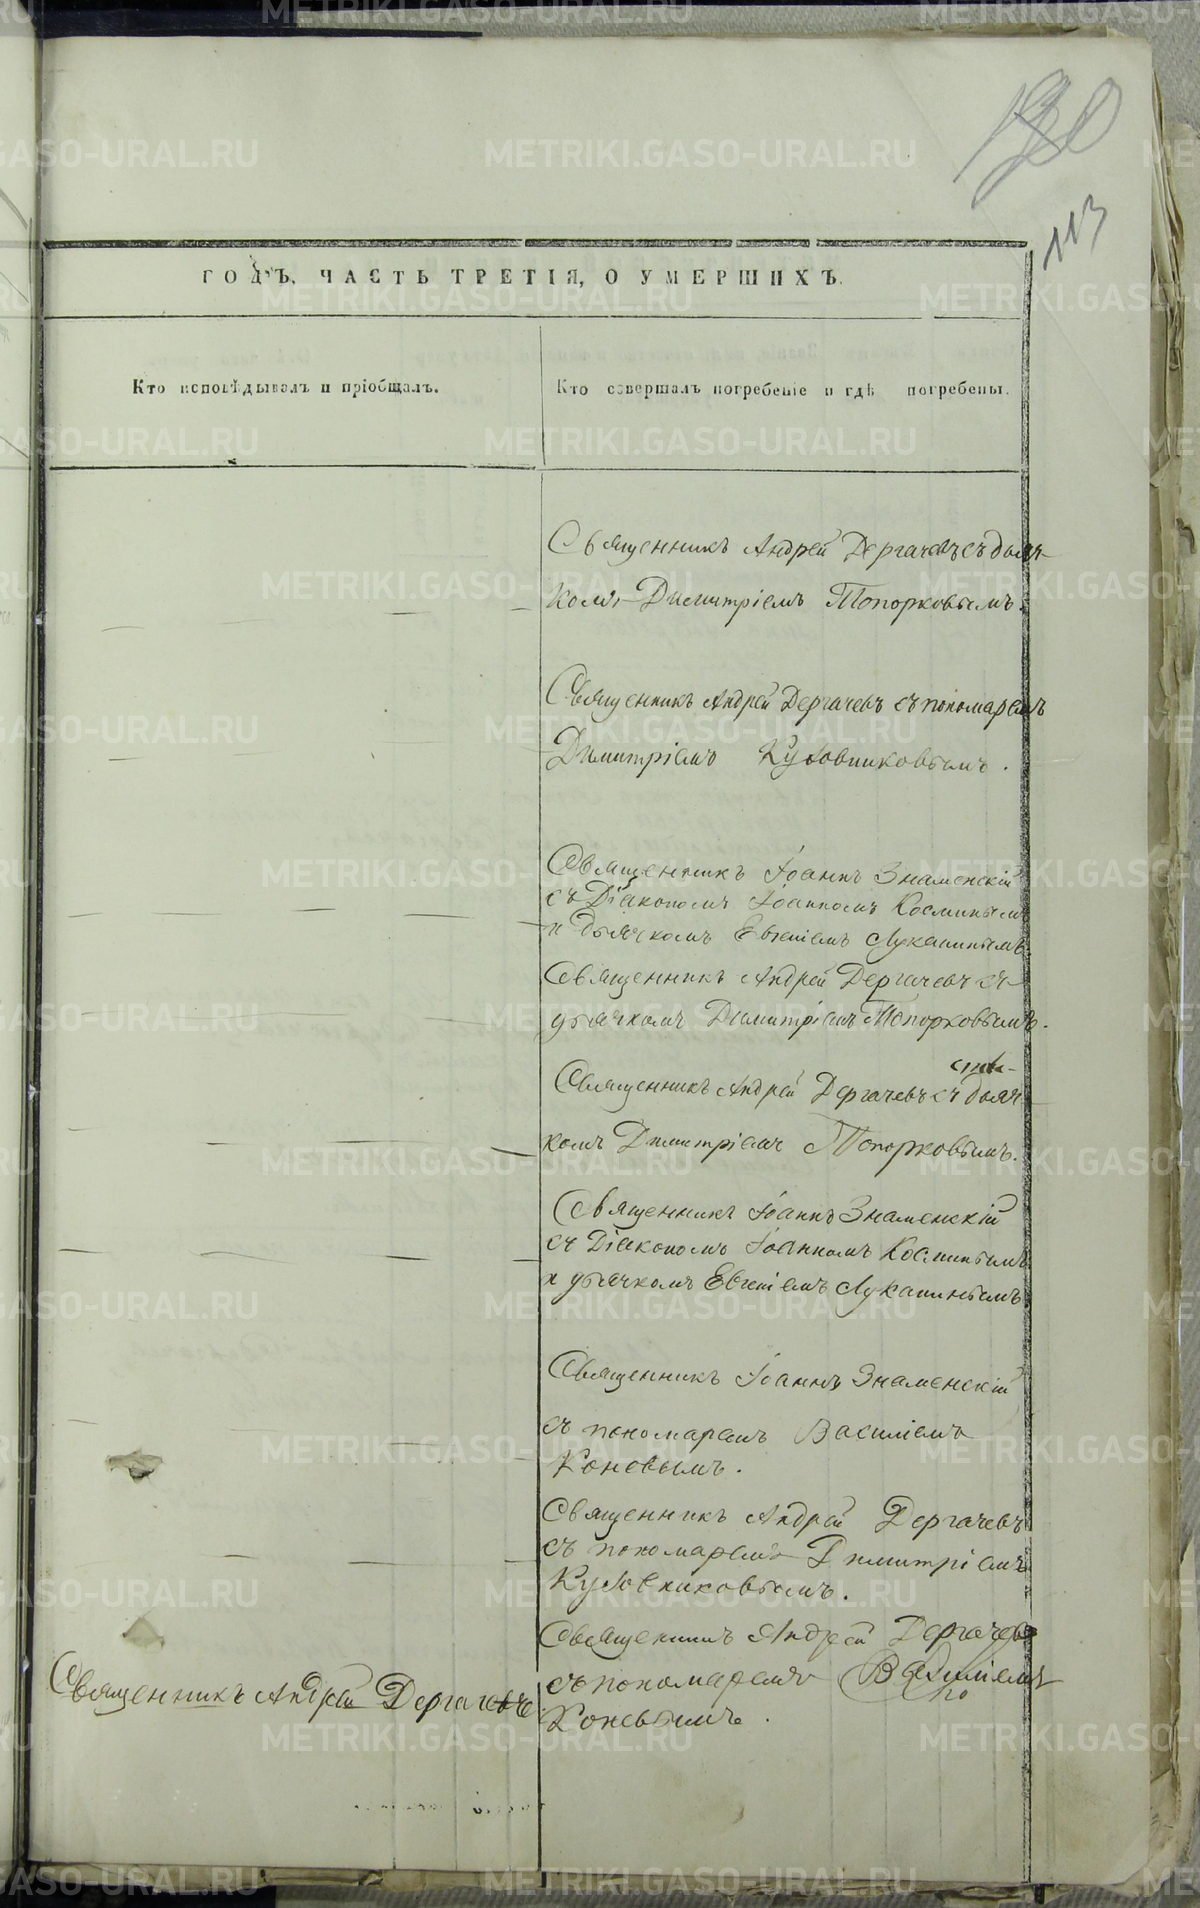 113
ГОДЪ, ЧАСТЬ ТРЕТІЯ, О УМЕРШИХЪ.
Кто исповѣдывалъ и пріобщалъ.
Кто совершалъ погребеніе и гдѣ погребены.
Священникъ Андрей Дергачевъ съ дьяч-
комъ Димитріемъ Топорковымъ.
Священникъ Андрей Дергачевъ съ пономаремъ
Димитріемъ Кузовниковымъ.
Священникъ Іоаннъ Знаменскій
съ Діакономъ Іоанномъ Косминымъ
и дьячкомъ Евгеніемъ Луканинымъ.
Священникъ Андрей Дергачевъ съ
дьячкомъ Димитріемъ Топорковымъ.
Священникъ Андрей Дергачевъ съ дьяч-
комъ Димитріемъ Топорковымъ.
Священникъ Іоаннъ Знаменскій
съ Діакономъ Іоанномъ Косминымъ
и дьячкомъ Евгеніемъ Луканинымъ
Священникъ Іоаннъ Знаменскій
съ пономаремъ Василіемъ
Коневымъ.
Священникъ Андрей Дергачевъ
съ пономаремъ Димитріемъ
Кузовниковымъ.
Священникъ Андрей Дергачевъ
Священникъ Андрей Дергачевъ
съ пономаремъ Василіемъ
Коневымъ.
METRIKI.GASO-URAL.RU